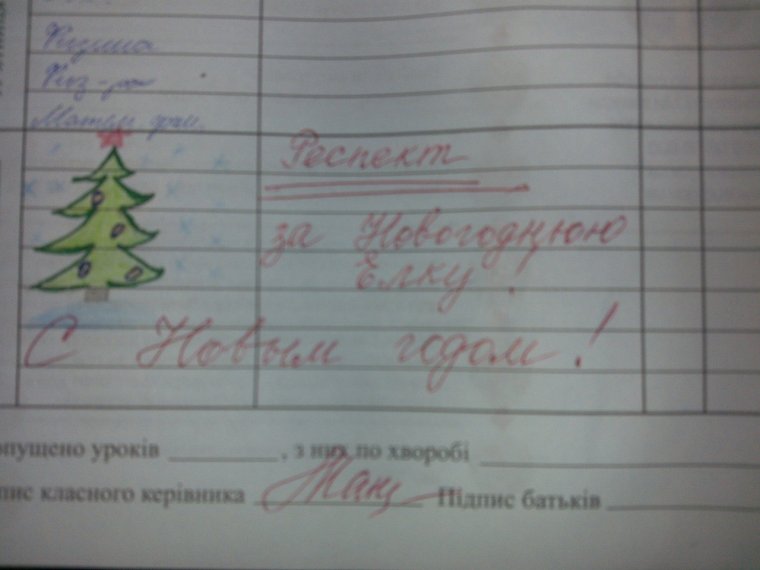 Физика
Физ-ра
Матем.
Респект
за Новогоднюю
Ёлку!
С Новым годом!
опущено уроків ________ , з них по хворобі ________
пис класного керівника ________ Підпис батьків ________